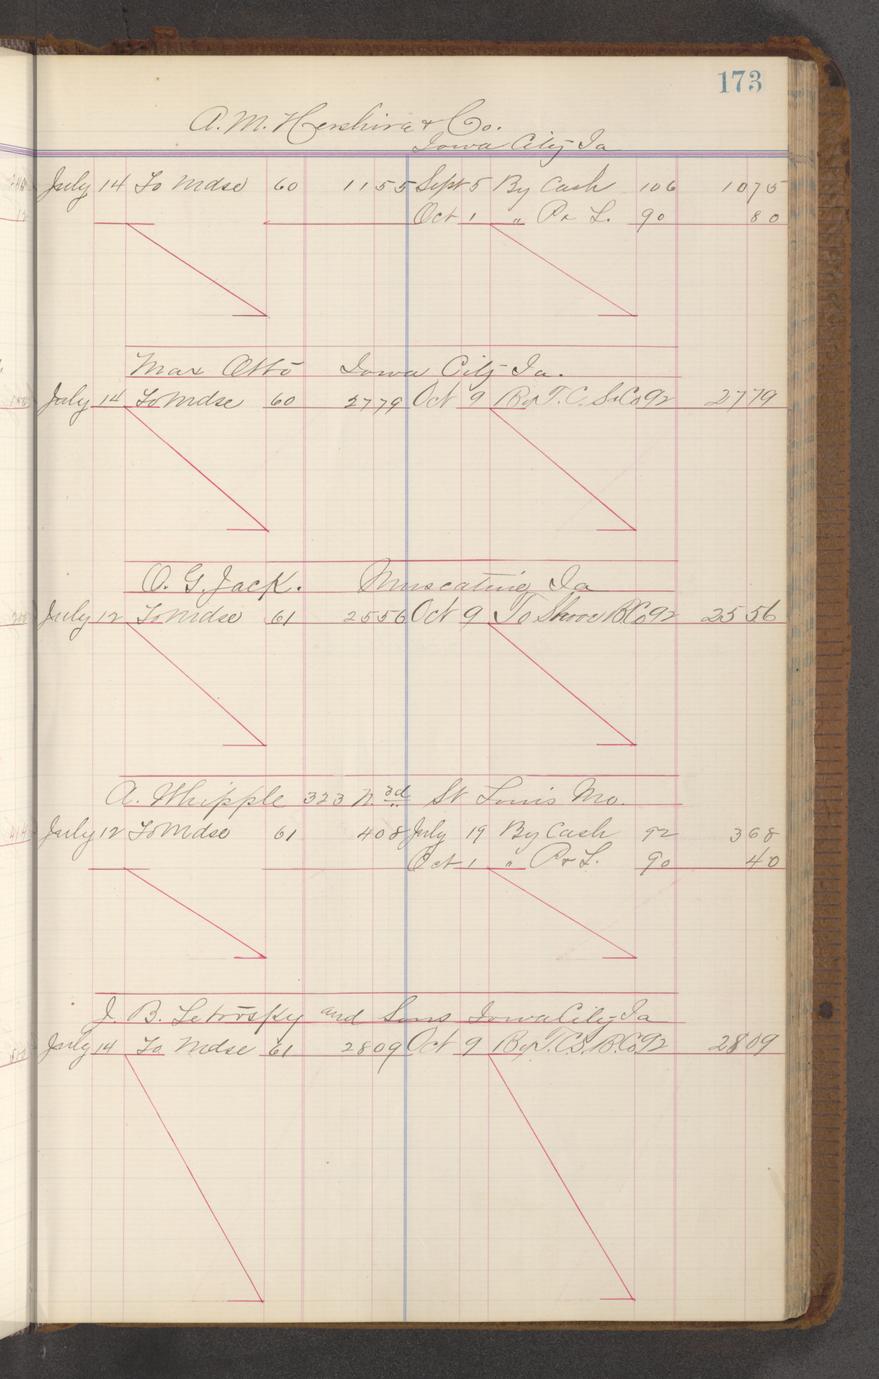 173
A. M. Hershire & Co.
Iowa City Ia
July 14 To Mdse 60 11 55 Sept 5 By Cash 106 10 75
Oct 1 " P & L. 90 80
Max Otto Iowa City Ia.
July 14 To Mdse 60 27 79 Oct 9 By T. C. S. Co 92 27 79
O. G. Jack. Muscatine Ia
July 12 To Mdse 61 25 56 Oct 9 To Shove B. Co 92 25 56
A. Whipple 323 N. 3d St Louis Mo.
July 12 To Mdse 61 4 08 July 19 By Cash 92 3 68
Oct 1 " P & L. 90 40
J. B. Letovsky and Sons Iowa City Ia
July 14 To Mdse 61 28 09 Oct 9 By T. C. S. B. Co 92 28 09